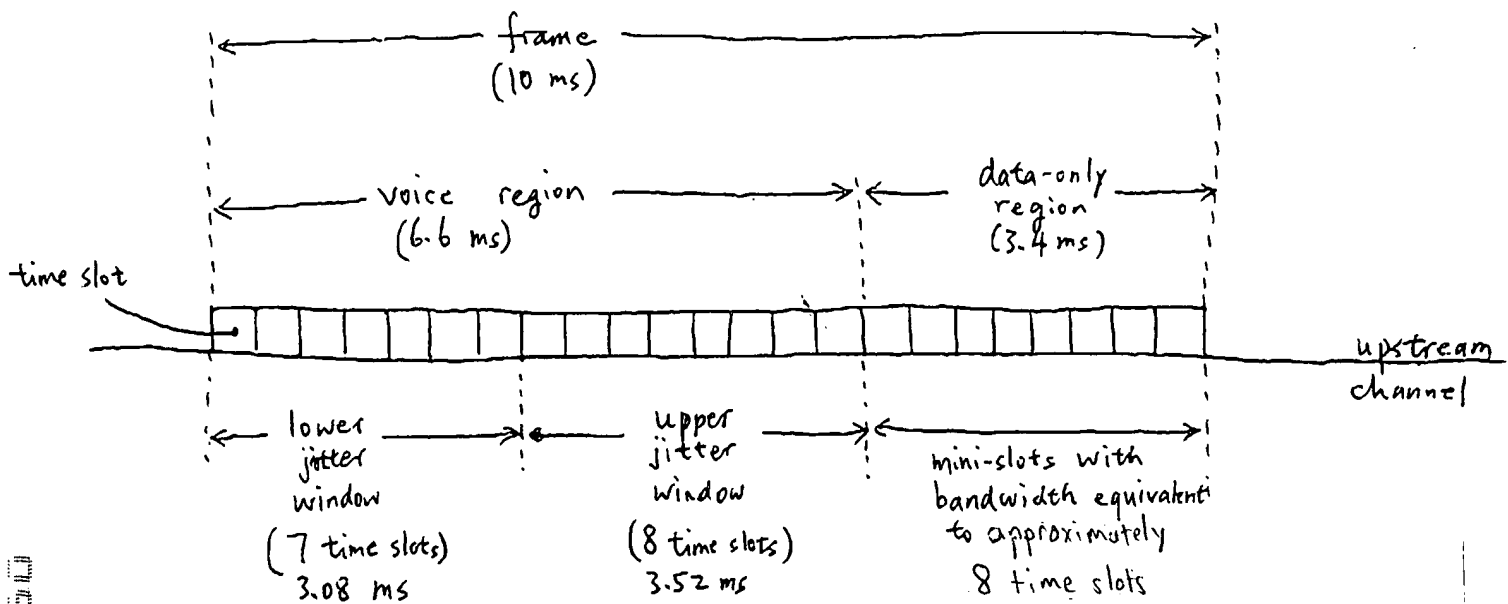 frame
(10 ms)
voice region
(6.6 ms)
data-only
region
(3.4 ms)
time slot
upstream
channel
lower
jitter
window
(7 time slots)
3.08 ms
upper
jitter
window
(8 time slots)
3.52 ms
mini-slots with
bandwidth equivalent
to approximately
8 time slots